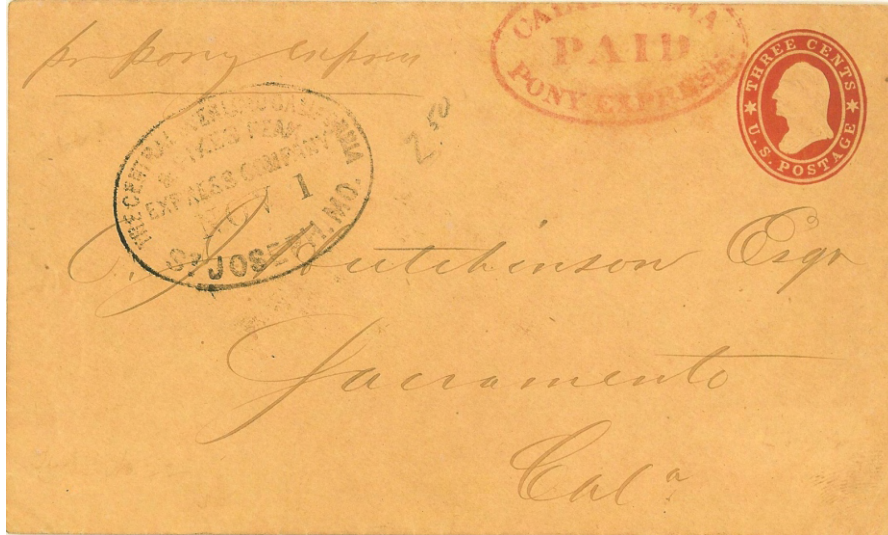 pr Pony Express
CALIFORNIA
PAID
PONY EXPRESS
THREE CENTS
U.S. POSTAGE
2.50
THE CENTRAL OVERLAND CALIFORNIA
& PIKES PEAK
EXPRESS COMPANY
NOV 1
ST JOSEPH, MO.
Hutchinson Esqr
Sacramento
Cala